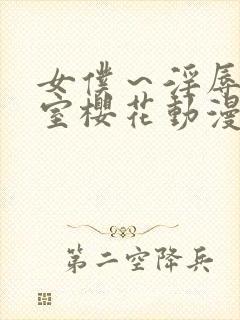 女僕～淫辱
室櫻花動漫
第二空降兵